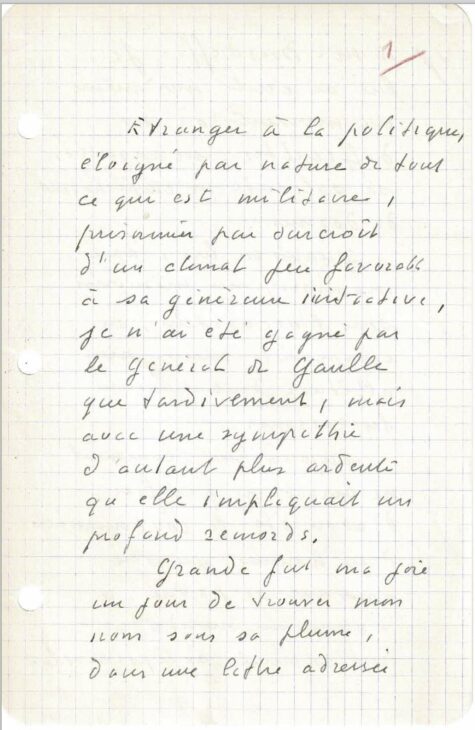 1
Etranger à la politique,
éloigné par nature de tout
ce qui est militaire,
prisonnier par surcroît
d'un climat peu favorable
à sa généreuse initiative,
je n'ai été gagné par
le Général de Gaulle
que tardivement, mais
avec une sympathie
d'autant plus ardente
qu'elle impliquait un
profond remords.
Grande fut ma joie
un jour de trouver mon
nom sous sa plume,
dans une lettre adressée